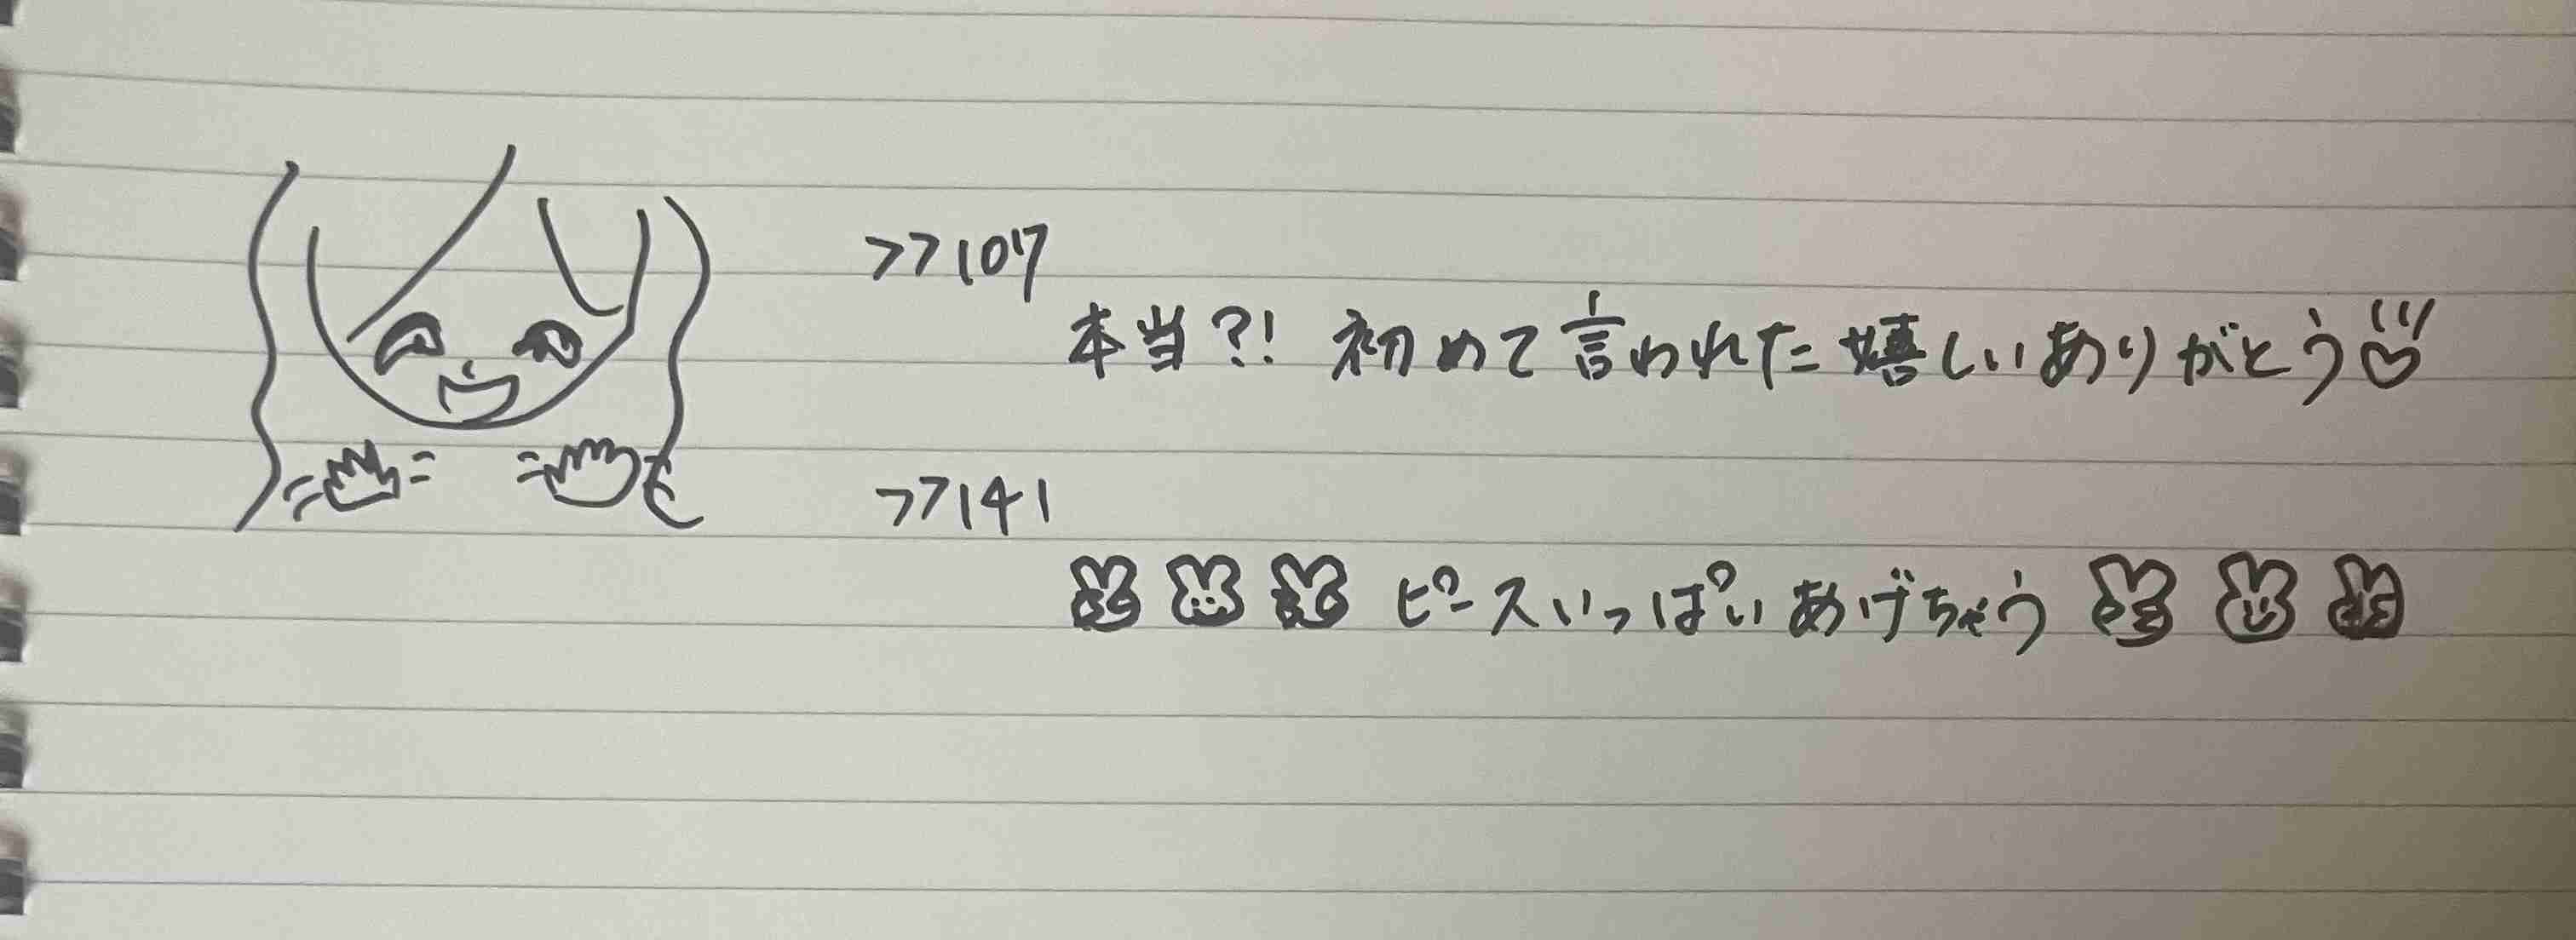 >>107
本当?! 初めて言われた嬉しいありがとう
>>141
ピースいっぱいあげちゃう